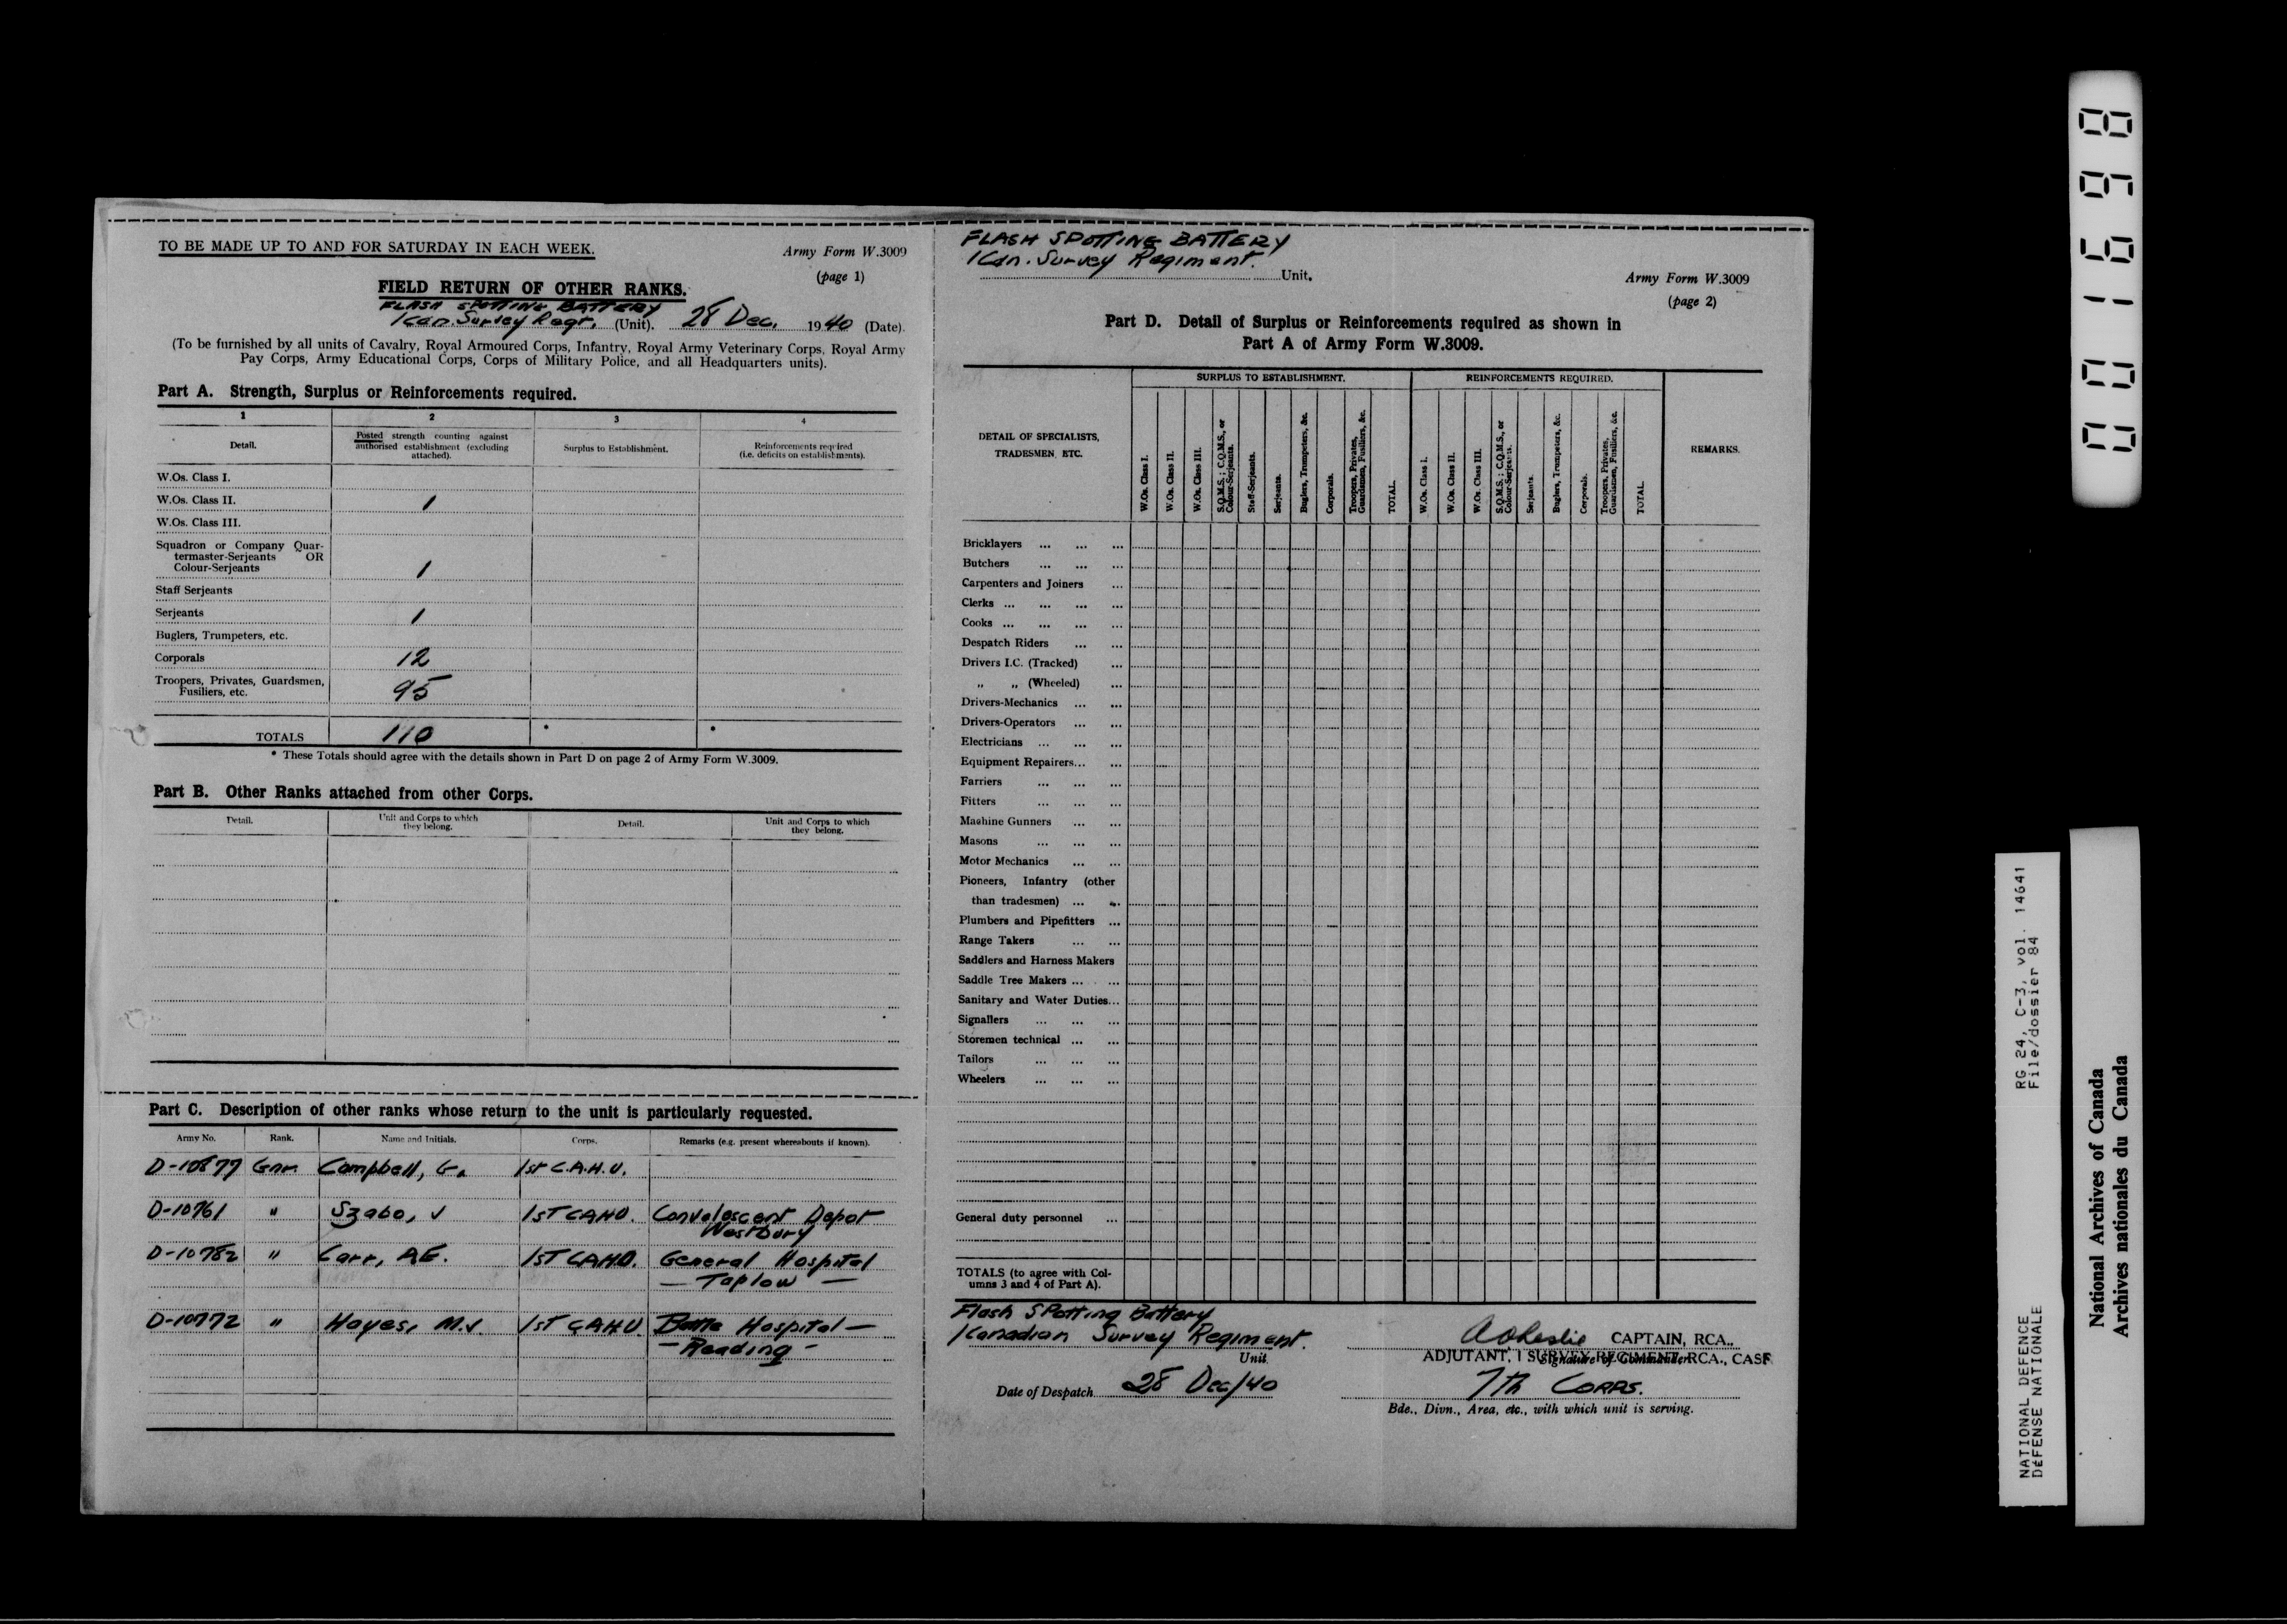 TO BE MADE UP TO AND FOR SATURDAY IN EACH WEEK.
Army Form W.3009
(page 1)
FIELD RETURN OF OTHER RANKS.
FLASH SPOTTING BATTERY
1 Can. Survey Regt. (Unit). 28 Dec. 1940 (Date).
(To be furnished by all units of Cavalry, Royal Armoured Corps, Infantry, Royal Army Veterinary Corps, Royal Army
Pay Corps, Army Educational Corps, Corps of Military Police, and all Headquarters units).
Part A. Strength, Surplus or Reinforcements required.
1 2 3 4
Detail.
Posted strength counting against
authorised establishment (excluding
attached).
Surplus to Establishment.
Reinforcements required
(i.e. deficits on establishments).
W.Os. Class I.
W.Os. Class II. 1
W.Os. Class III.
Squadron or Company Quar-
termaster-Serjeants OR
Colour-Serjeants 1
Staff Serjeants
Serjeants 1
Buglers, Trumpeters, etc.
Corporals 12
Troopers, Privates, Guardsmen,
Fusiliers, etc. 95
TOTALS 110 * *
* These Totals should agree with the details shown in Part D on page 2 of Army Form W.3009.
Part B. Other Ranks attached from other Corps.
Detail.
Unit and Corps to which
they belong.
Detail.
Unit and Corps to which
they belong.
Part C. Description of other ranks whose return to the unit is particularly requested.
Army No. Rank. Name and Initials. Corps. Remarks (e.g. present whereabouts if known).
D-10877 Gnr. Campbell, G. 1st C.A.H.U.
D-10761 " Szabo, V 1ST CAHU. Convalescent Depot
Westbury
D-10782 " Carr, A.E. 1ST CAHU. General Hospital
— Taplow —
D-10772 " Hayes, M.J. 1ST CAHU. Battle Hospital —
— Reading —
FLASH SPOTTING BATTERY
1 Cdn. Survey Regiment. Unit.
Army Form W.3009
(page 2)
Part D. Detail of Surplus or Reinforcements required as shown in
Part A of Army Form W.3009.
DETAIL OF SPECIALISTS,
TRADESMEN, ETC.
SURPLUS TO ESTABLISHMENT.
W.Os. Class I.
W.Os. Class II.
W.Os. Class III.
S.Q.M.S.; C.Q.M.S., or
Colour-Serjeants.
Staff-Serjeants.
Serjeants.
Buglers, Trumpeters, &c.
Corporals.
Troopers, Privates,
Guardsmen, Fusiliers, &c.
TOTAL.
REINFORCEMENTS REQUIRED.
W.Os. Class I.
W.Os. Class II.
W.Os. Class III.
S.Q.M.S.; C.Q.M.S., or
Colour-Serjeants.
Serjeants.
Buglers, Trumpeters, &c.
Corporals.
Troopers, Privates,
Guardsmen, Fusiliers, &c.
TOTAL.
REMARKS.
Bricklayers ... ... ...
Butchers ... ... ...
Carpenters and Joiners ...
Clerks ... ... ... ...
Cooks ... ... ... ...
Despatch Riders ... ...
Drivers I.C. (Tracked) ...
" " (Wheeled) ...
Drivers-Mechanics ... ...
Drivers-Operators ... ...
Electricians ... ... ...
Equipment Repairers... ...
Farriers ... ... ...
Fitters ... ... ...
Machine Gunners ... ...
Masons ... ... ...
Motor Mechanics ... ...
Pioneers, Infantry (other
than tradesmen) ... ...
Plumbers and Pipefitters ...
Range Takers ... ...
Saddlers and Harness Makers
Saddle Tree Makers ... ...
Sanitary and Water Duties...
Signallers ... ... ...
Storemen technical ... ...
Tailors ... ... ...
Wheelers ... ... ...
General duty personnel ...
TOTALS (to agree with Col-
umns 3 and 4 of Part A).
Flash Spotting Battery
1 Canadian Survey Regiment.
Unit
Date of Despatch 28 Dec/40
CAPTAIN, RCA.,
ADJUTANT, 1 SURVEY REGIMENT, RCA., CASF
Signature of Commander
7th CORPS.
Bde., Divn., Area, etc., with which unit is serving.
001698
RG 24, C-3, vol. 14641
File/dossier 84
NATIONAL DEFENCE
DÉFENSE NATIONALE
National Archives of Canada
Archives nationales du Canada